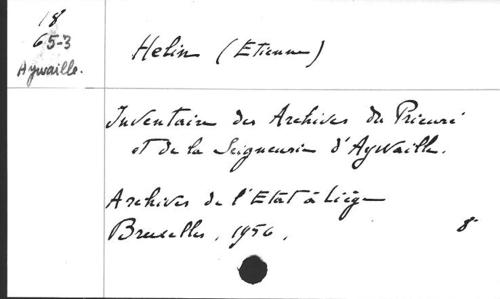 18
65-3
Aywaille.
Helin (Etienne)
Inventaire des Archives du Prieuré
et de la Seigneurie d'Aywaille.
Archives de l'Etat à Liège
Bruxelles, 1956.
8°